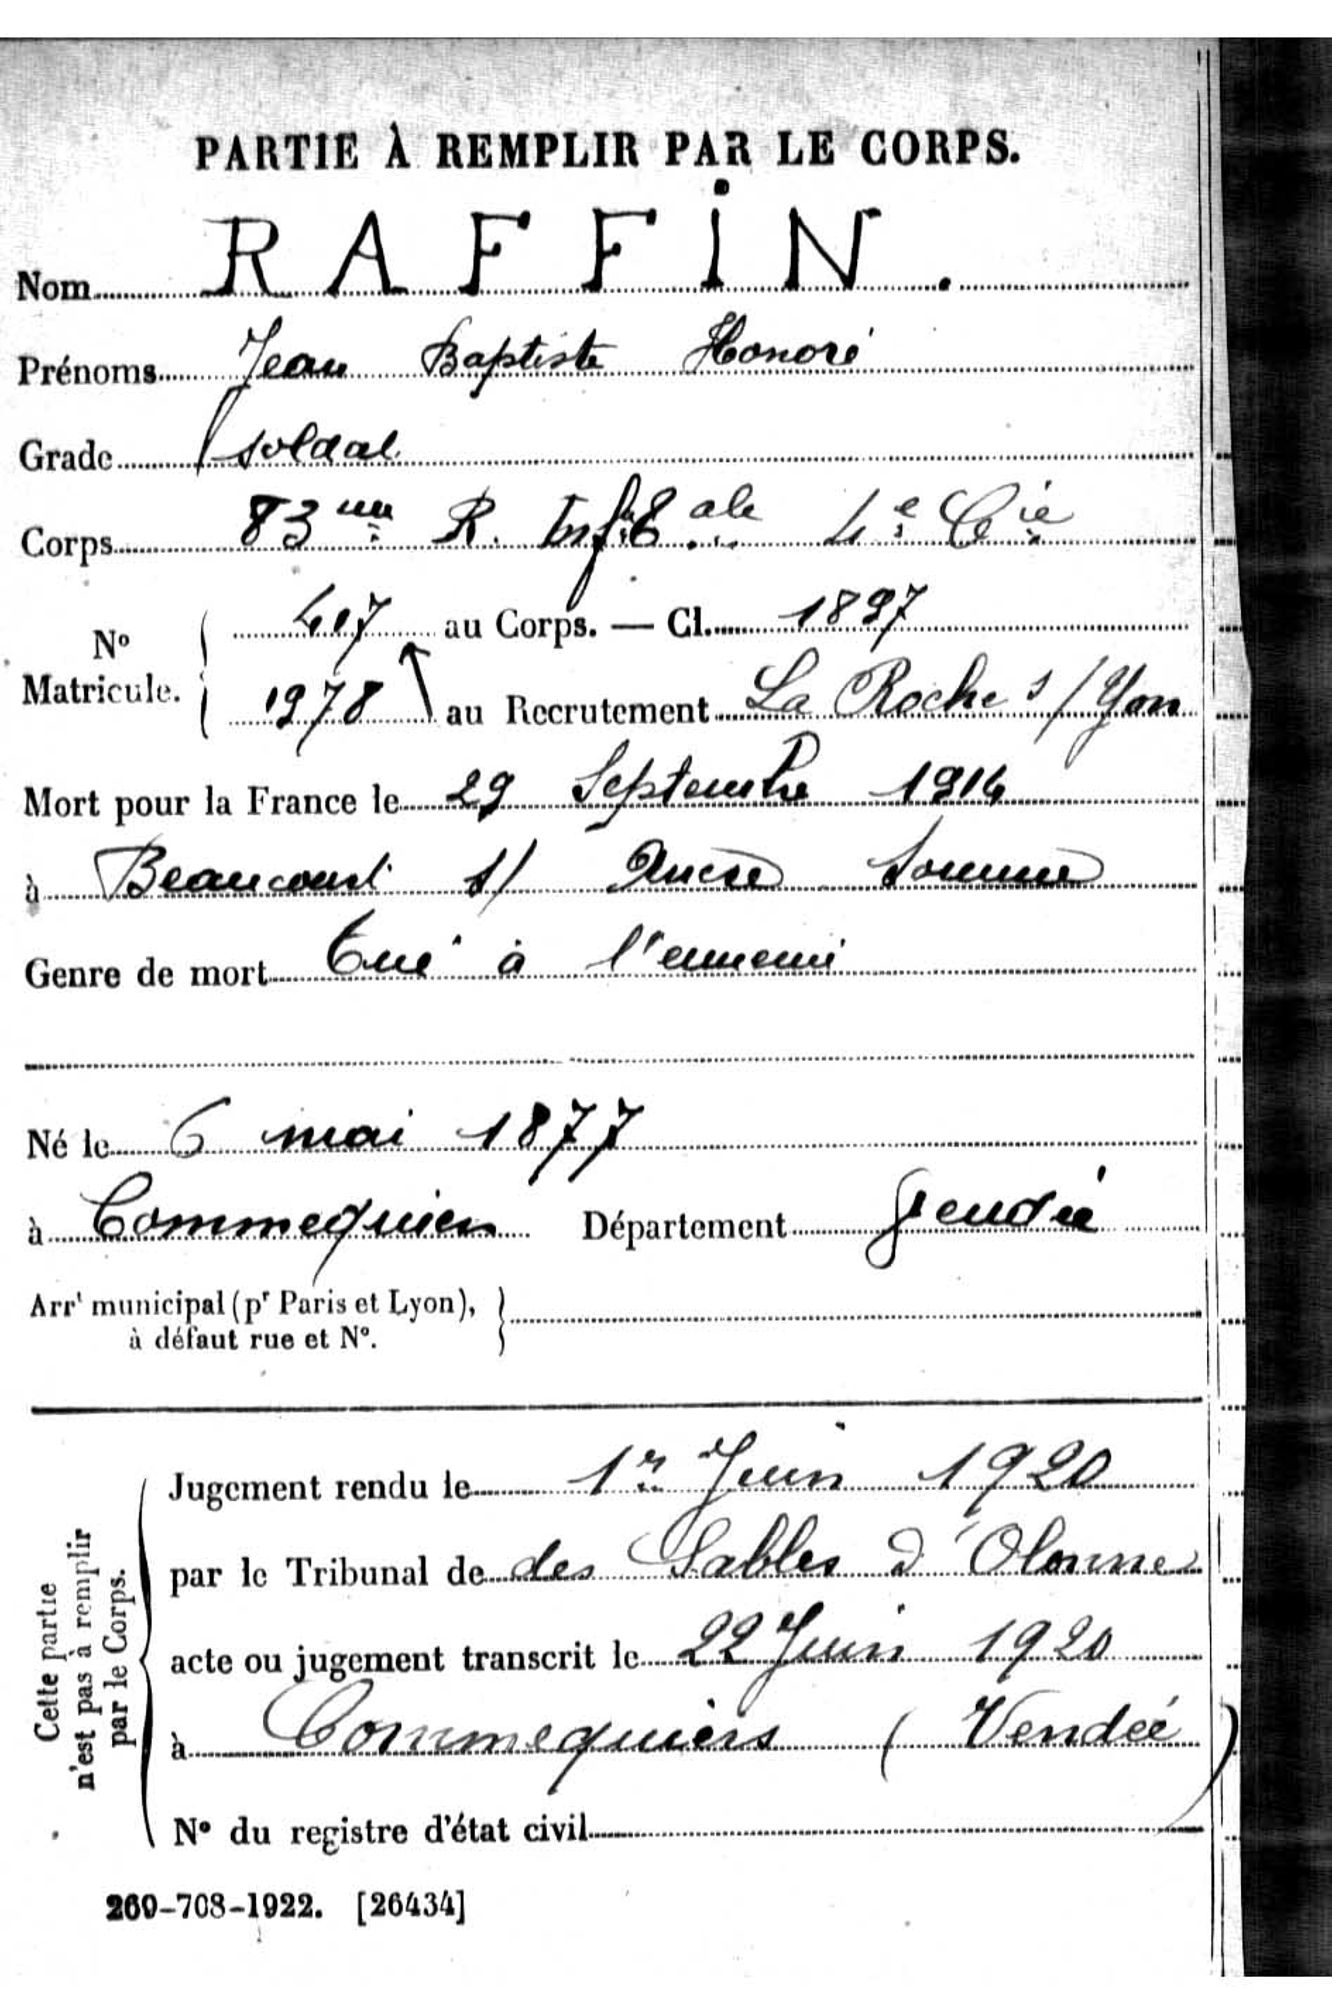 PARTIE À REMPLIR PAR LE CORPS.
Nom RAFFIN.
Prénoms Jean Baptiste Honoré
Grade soldat
Corps 83me R. Inf. Eale 4e Cie
No Matricule. { 407 au Corps. — Cl. 1897
1978 au Recrutement La Roche s/Yon
Mort pour la France le 29 Septembre 1914
à Beaucourt s/ Ancre Somme
Genre de mort Tué à l'ennemi
Né le 6 mai 1877
à Commequiers Département Vendée
Arrt municipal (pr Paris et Lyon), }
à défaut rue et No.
Cette partie
n'est pas à remplir
par le Corps.
Jugement rendu le 1er Juin 1920
par le Tribunal de des Sables d'Olonne
acte ou jugement transcrit le 22 Juin 1920
à Commequiers (Vendée)
No du registre d'état civil
269-708-1922. [26434]